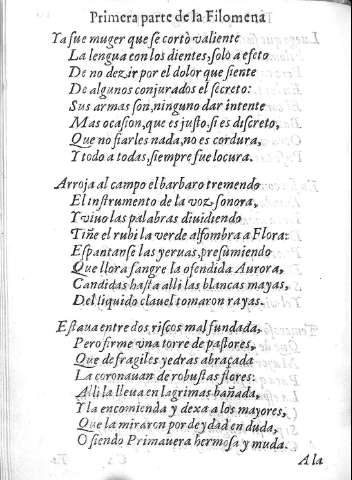 Primera parte de la Filomena
Ya fue muger que se cortò valiente
La lengua con los dientes, solo a efeto
De no dezir por el dolor que siente
De algunos conjurados el secreto:
Sus armas son, ninguno dar intente
Mas ocasion, que es justo, si es discreto,
Que no fiarles nada, no es cordura,
Y todo a todas, siempre fue locura.
Arroja al campo el barbaro tremendo
El instrumento de la voz sonora,
Y viuo las palabras diuidiendo
Tiñe el rubi la verde alfombra a Flora:
Espantanse las yeruas, presumiendo
Que llora sangre la ofendida Aurora,
Candidas hasta alli las blancas mayas,
Del liquido clauel tomaron rayas.
Estaua entre dos riscos mal fundada,
Pero firme vna torre de pastores,
Que de fragiles yedras abraçada
La coronauan de robustas flores:
Alli la lleua en lagrimas bañada,
Y la encomienda y dexa a los mayores,
Que la miraron por deydad en duda,
O siendo Primauera hermosa y muda.
A la